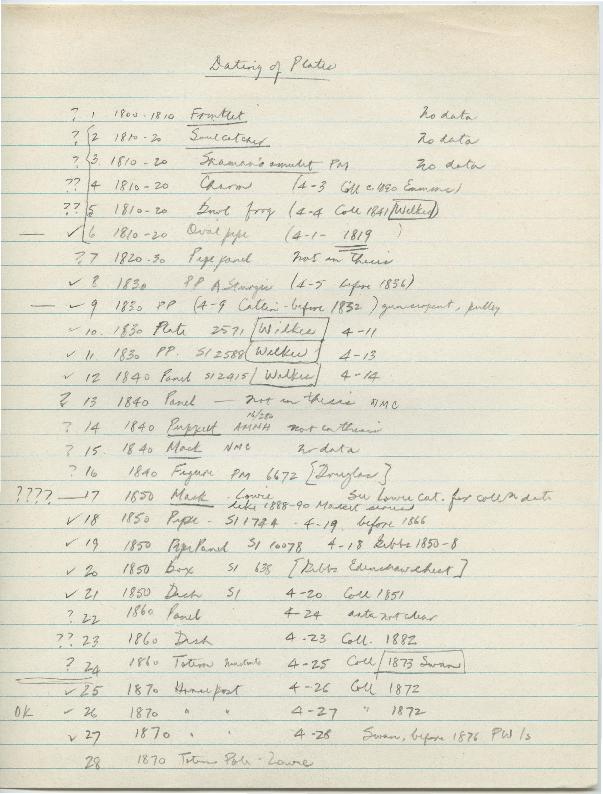 Dating of Plates
? 1 1800-1810 Frontlet No data
? 2 1810-20 Soulcatcher No data
? 3. 1810-20 Shaman's amulet PM No data
?? 4 1810-20 Charm (4-3 Coll c 1890 Emmons)
?? 5 1810-20 Bowl frog (4-4 Coll 1841 Wilkes)
— ✓ 6 1810-20 Oval pipe (4-1- 1819 )
? 7 1820-30 Pipe panel not in thesis
✓ 8 1830 PP A Sturgis (4-5 before 1836)
— ✓ 9 1830 PP (4-9 Catlin-before 1832)
✓ 10. 1830 Plate 2571 Wilkes 4-11
✓ 11 1830 PP. SI 2588 Wilkes 4-13
✓ 12 1840 Panel SI 2415 Wilkes 4-14
? 13 1840 Panel — not in thesis NMC
? 14 1840 Puppet AMNH not in thesis
? 15. 1840 Mask NMC no data
? 16 1840 Figure PM 6672 [Douglas]
???? — 17 1850 Mask - Lowie See Lowie cat. for coll'n date
like 1888-90 Masset series
✓ 18 1850 Pipe - SI 1744 - 4-19. before 1866
✓ 19 1850 Pipe Panel SI 10078 4-18 Gibbs 1850-8
✓ 20 1850 Box SI 638 [Gibbs Edenshaw chest]
✓ 21 1850 Dish SI 4-20 Coll 1851
? 22 1860 Panel 4-24 data not clear
?? 23 1860 Dish 4-23 Coll. 1882
? 24 1860 Totem 4-25 Coll 1873 Swan
✓ 25 1870 Housepost 4-26 Coll 1872
OK ✓ 26 1870 " " 4-27 " 1872
✓ 27 1870 " " 4-28 Swan, before 1876 PW/s
28 1870 Totem Pole - Lowie